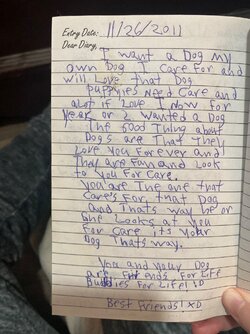 Entry Date: 11/26/2011
Dear Diary,
I want a Dog my
own Dog I Care For and
will Love that Dog
puppies Need Care and
alot if Love I Now for
Year or 2 wanted a Dog
The Good Thing about
Dogs are That They
Love You Forever and
They are Fun and Look
to You For Care.
You are The one that
Care's For that Dog
and Thats way he or
She Looks at You
For Care its Your
Dog Thats way.
You and Your Dog
are Friends For Life
Buddies For Life! XD
Best Friends! XD